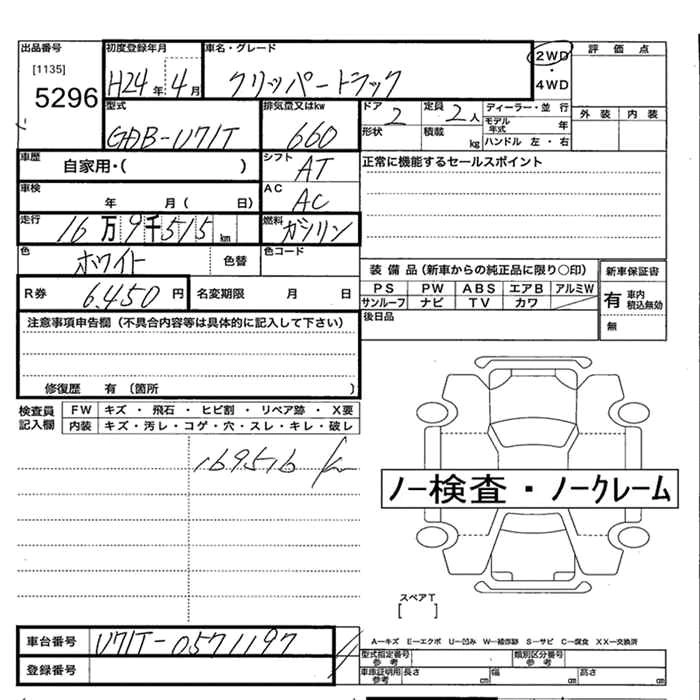 出品番号 初度登録年月 車名・グレード 2WD 評価点
[1135] H24年 4月 クリッパートラック ・
5296 4WD
型式 排気量又はkw ドア 2 定員 2人 ディーラー・並 行 外 装 内 装
GBD-U71T 660 形状 積載 kg モデル年式 年
ハンドル 左・右
車歴 自家用・( ) シフト AT 正常に機能するセールスポイント
車検 年 月( 日) AC AC
走行 16万9千515km 燃料 ガソリン
色 ホワイト 色替 色コード
装備品(新車からの純正品に限り〇印) 新車保証書
R券 6,450円 名変期限 月 日 PS PW ABS エアB アルミW 有 車内積込無効
サンルーフ ナビ TV カワ 無
注意事項申告欄(不具合内容等は具体的に記入して下さい) 後日品
修復歴 有(箇所 )
検査員記入欄 FW キズ・飛石・ヒビ割・リペア跡・X要
内装 キズ・汚レ・コゲ・穴・スレ・キレ・破レ
169516 km
ノー検査・ノークレーム
スペアT
[ ]
車台番号 U71T-0571197
A−キズ E−エクボ U−凹み W−補修跡 S−サビ C−腐食 XX−交換済
登録番号 型式指定番号 参考 類別区分番号 参考
車庫証明用 参考 長さ cm 幅 cm 高さ cm